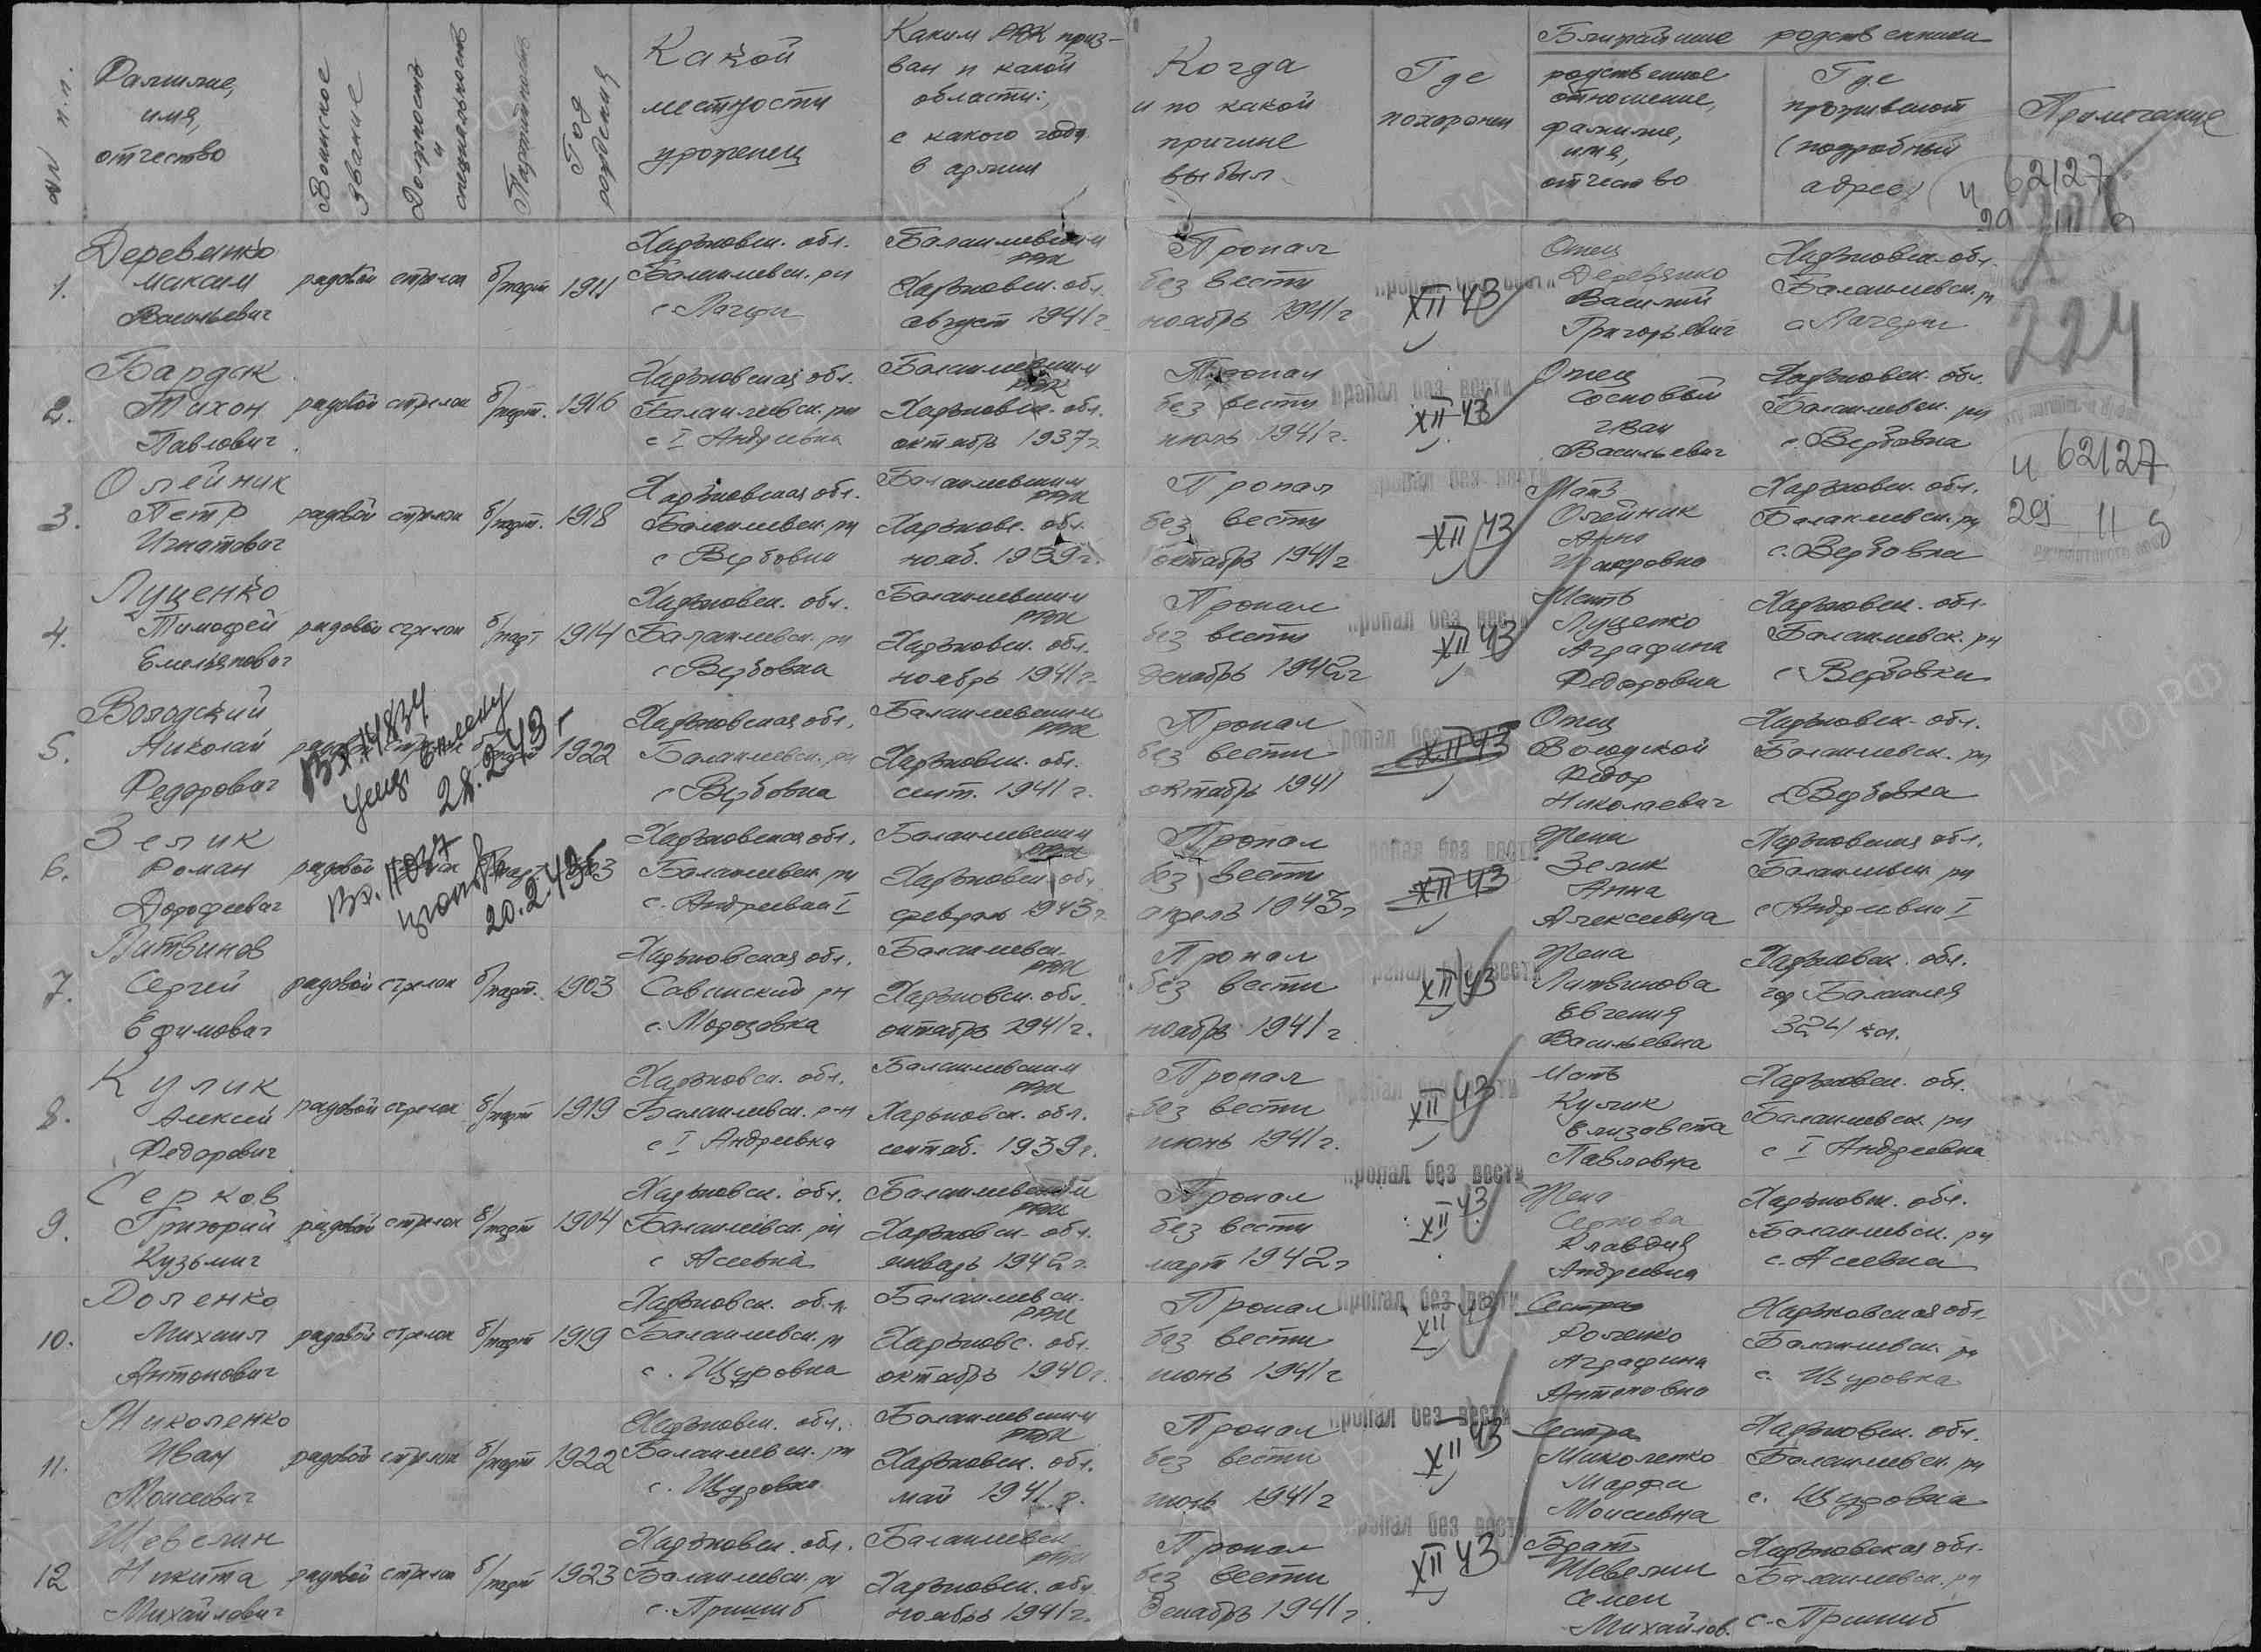 № п.п.
Фамилие,
имя,
отчество
Воинское
звание
Должность
и
специальность
Партийность
Год
рождения
Какой
местности
уроженец
Каким РВК приз-
ван и какой
области:,
с какого года
в армии
Когда
и по какой
причине
выбыл
Где
похоронен
Ближайшие родственники
родственное
отношение,
фамилие,
имя,
отчество
Где
проживают
(подробный
адрес)
Примечание
62127
1.
Деревянко
Максим
Васильевич
рядовой стрелок б/парт 1911
Харьковск. обл.
Балаклевск. рн
Балаклевским
РВК
Харьковск. обл.
август 1941 г
Пропал
без вести
ноябрь 1941 г
XII 43
Отец
Деревянко
Василий
Григорьевич
Харьковск. обл.
Балаклевск. рн
224
2.
Бардак
Тихон
Павлович
рядовой стрелок б/парт. 1916
Харьковская обл.
Балаклевск. рн
с I Андреевка
Балаклевским
РВК
Харьковск. обл.
октябрь 1937 г.
Пропал
без вести
июль 1941 г.
пропал без вести
XII 43
Отец
Сосновый
Иван
Васильевич
Харьковск. обл.
Балаклевск. рн
с. Вербовка
и 62127
29 11
3.
Олейник
Петр
Игнатович
рядовой стрелок б/парт. 1918
Харьковская обл.
Балаклевск. рн
с Вербовки
Балаклевским
РВК
Харьковс. обл.
нояб. 1939 г.
Пропал
без вести
октябрь 1941 г
XII 43
Мать
Олейник
Анна
Харьковск. обл.
Балаклевск. рн
с. Вербовка
4.
Луценко
Тимофей
Емельянович
рядовой стрелок б/парт 1914
Харьковск. обл.
Балаклевск. рн
с Вербовка
Балаклевским
РВК
Харьковск. обл.
ноябрь 1941 г.
Пропал
без вести
декабрь 1942 г
пропал без вести
XII 43
Мать
Луценко
Аграфина
Федоровна
Харьковск. обл.
Балаклевск. рн
с Вербовки
5.
Володский
Николай
Федорович
Вх. 14834
28.2.43 г
1922
Харьковская обл.
Балаклевск. рн
с Вербовка
Балаклевским
РВК
Харьковск. обл.
сент. 1941 г.
Пропал
без вести
октябрь 1941
XII 43
Отец
Володской
Федор
Николаевич
Харьковск. обл.
Балаклевск. рн
с Вербовка
6.
Зелик
Роман
Дорофеевич
рядовой
Вх. 11037
20.2.43 г
Харьковская обл.
Балаклевск. рн
с. Андреевка I
Балаклевским
РВК
Харьковск. обл.
февраль 1943 г.
Пропал
без вести
апрель 1943 г
XII 43
Жена
Зелик
Анна
Алексеевна
Харьковская обл.
Балаклевск. рн
с Андреевка I
7.
Литвинов
Сергей
Ефимович
рядовой стрелок б/парт. 1903
Харьковская обл.
Савинский рн
с. Морозовка
Балаклевск.
РВК
Харьковск. обл.
октябрь 1941 г.
Пропал
без вести
ноябрь 1941 г
XII 43
Жена
Литвинова
Евгения
Васильевна
Харьковск. обл.
гор Балаклея
8.
Кулик
Алексей
Федорович
рядовой стрелок б/парт 1919
Харьковск. обл.
Балаклевск. р-н
с I Андреевка
Балаклевским
РВК
Харьковск. обл.
сентяб. 1939 г.
Пропал
без вести
июнь 1941 г.
XII 43
Мать
Кулик
Елизавета
Павловна
Харьковск. обл.
Балаклевск. рн
с I Андреевка
9.
Серков
Григорий
Кузьмич
рядовой стрелок б/парт 1904
Харьковск. обл.
Балаклевск. рн
с Асеевка
Балаклевским
РВК
Харьковск. обл.
январь 1942 г.
Пропал
без вести
март 1942 г
пропал без вести
XII 43
Жена
Серкова
Клавдия
Андреевна
Харьковск. обл.
Балаклевск. рн
с. Асеевка
10.
Доленко
Михаил
Антонович
рядовой стрелок б/парт 1919
Харьковск. обл.
Балаклевск. рн
с. Щуровка
Балаклевск.
РВК
Харьковс. обл.
октябрь 1940 г.
Пропал
без вести
июнь 1941 г
пропал без вести
XII 43
Сестра
Доленко
Аграфина
Антоновна
Харьковская обл.
Балаклевск. рн
с. Щуровка
11.
Миколенко
Иван
Моисеевич
рядовой стрелок б/парт 1922
Харьковск. обл.
Балаклевск. рн
с. Щуровка
Балаклевским
РВК
Харьковск. обл.
май 1941 г.
Пропал
без вести
июнь 1941 г
пропал без вести
XII 43
Сестра
Миколенко
Марфа
Моисеевна
Харьковск. обл.
Балаклевск. рн
с. Щуровка
12
Шевелин
Никита
Михайлович
рядовой стрелок б/парт 1923
Харьковск. обл.
Балаклевск. рн
с. Пришиб
Балаклевск
РВК
Харьковск. обл.
ноябрь 1941 г.
Пропал
без вести
декабрь 1941 г.
пропал без вести
XII 43
Брат
Шевелин
Семен
Михайлов.
Харьковская обл.
Балаклевск. рн
с. Пришиб